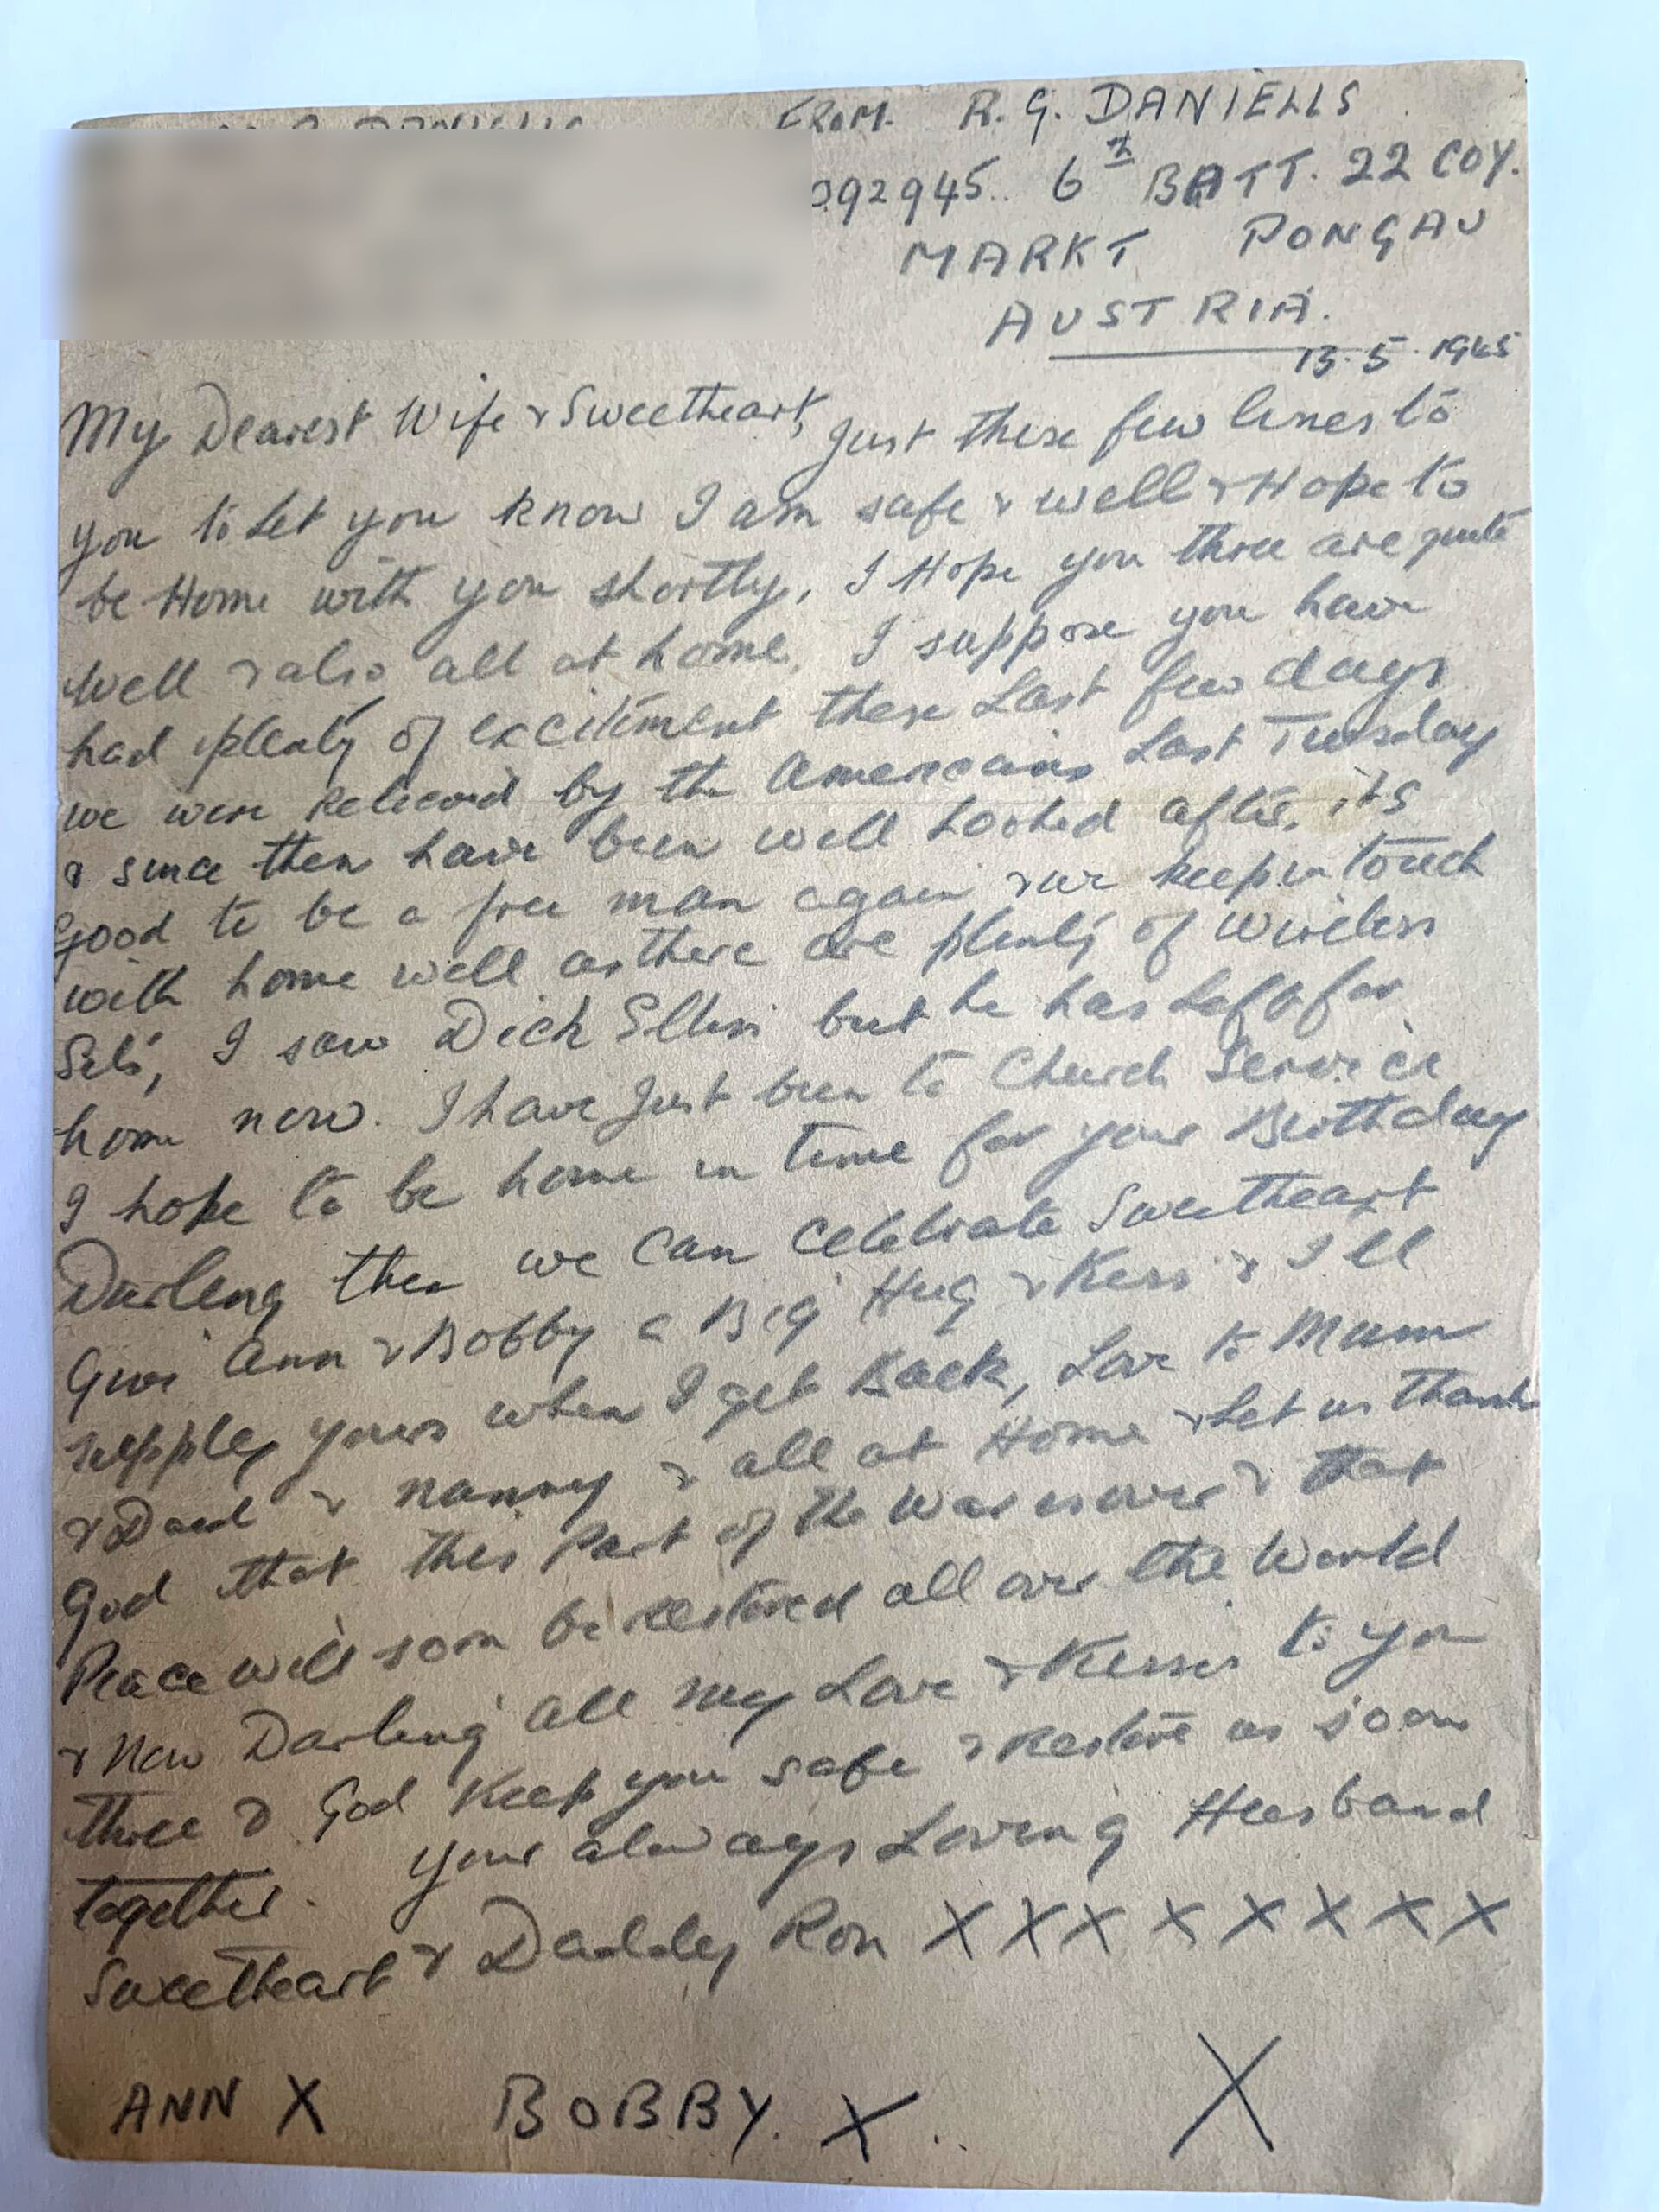 DANIELLS
FROM. R. G. DANIELLS
92945.. 6th BATT. 22 COY.
MARKT PONGAU
AUSTRIA.
13.5.1945
My Dearest Wife & Sweetheart, Just these few lines to
you to Let you know I am safe & well & Hope to
be Home with you shortly, I Hope you three are quite
well & also all at home, I suppose you have
had plenty of excitiment these Last few days
we were releived by the Americains Last Tuesday
& since then have been well Looked after, its
Good to be a free man again & we keep in touch
with home well as there are plenty of wireless
Sets, I saw Dick but he has Left for
home now. I have Just been to Church Service
I hope to be home in time for your Birthday
Darling then we can Celebrate Sweetheart
Give Ann & Bobby a Big Hug & Kiss & I'll
supply yours when I get Back, Love to Mum
& Dad & nanny & all at Home & Let us thank
God that this Part of the War is over & that
Peace will soon be restored all over the World
& Now Darling all my Love & Kisses to you
three & God Keep you safe & Restore us soon
together. Your always Loving Husband
Sweetheart & Daddy Ron X X X X X X X X
ANN X BOBBY. X X